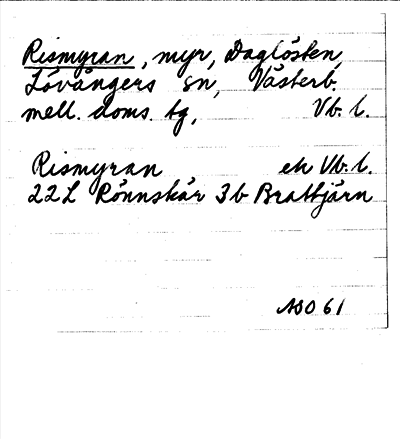 Rismyran, myr, Daglösten,
Lövångers sn, Västerb.
mell. doms. tg, Vb. l.
Rismyran ek Vb. l.
22L Rönnskär 3b Brattjärn
ASO 61